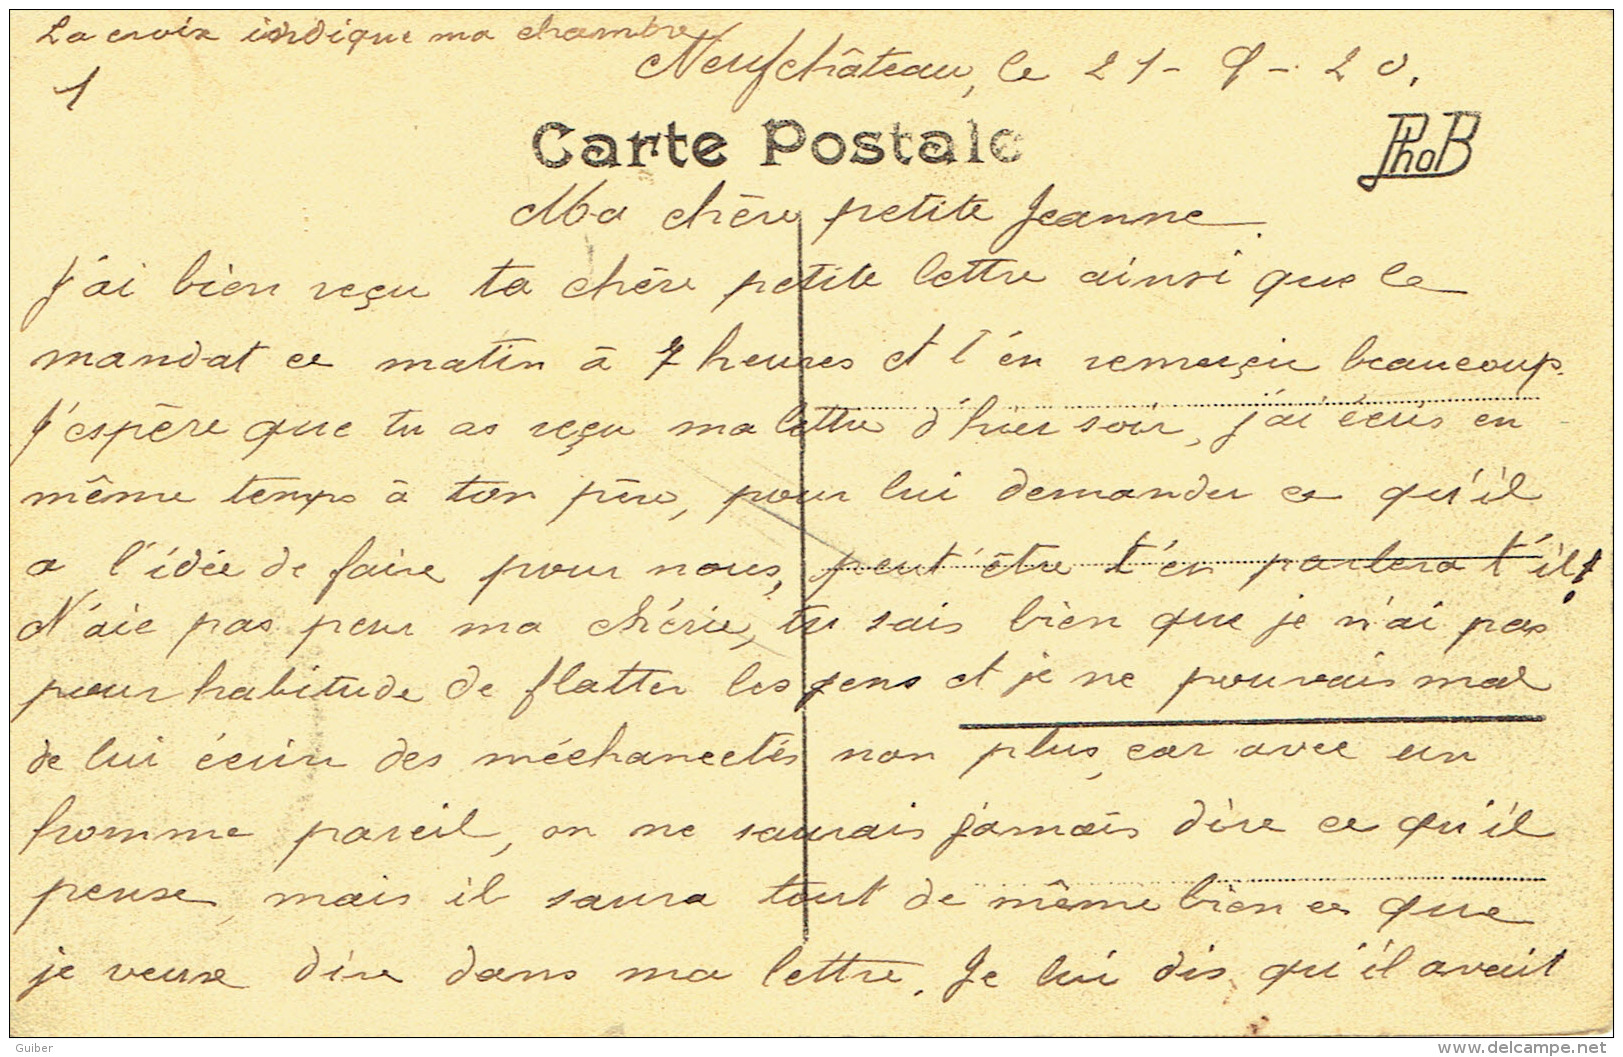 La croix indique ma chambre
1
Neufchâteau, le 21-9-20.
Carte Postale
PhoB
Ma chère petite Jeanne.
J'ai bien reçu ta chère petite lettre ainsi que le
mandat ce matin à 7 heures et t'en remerçie beaucoup.
J'espère que tu as reçu ma lettre d'hier soir, j'ai écris en
même temps à ton père, pour lui demander ce qu'il
a l'idée de faire pour nous, peut'être t'en parlera t'il!
N'aie pas peur ma chérie, tu sais bien que je n'ai pas
pour habitude de flatter les gens et je ne pouvais mal
de lui écrire des méchancetés non plus, car avec un
homme pareil, on ne saurais jamais dire ce qu'il
pense, mais il saura tout de même bien ce que
je veux dire dans ma lettre. Je lui dis qu'il avait
Guiber
www.delcampe.net